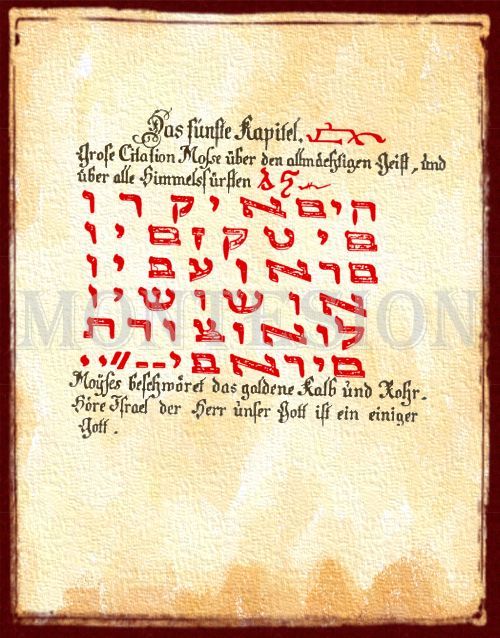 Das fünfte Kapitel.
Große Citation Mosse über den allmächtigen Geist, und
über alle Himmelsfürsten
היםאיקרו
ביטקוםיו
םראועביו
אושושיו
לואוצורת
םיראבי
MONTESION
Moÿses beschwöret das goldene Kalb und Rohr.
Höre Israel der Herr unser Gott ist ein einiger
Gott.